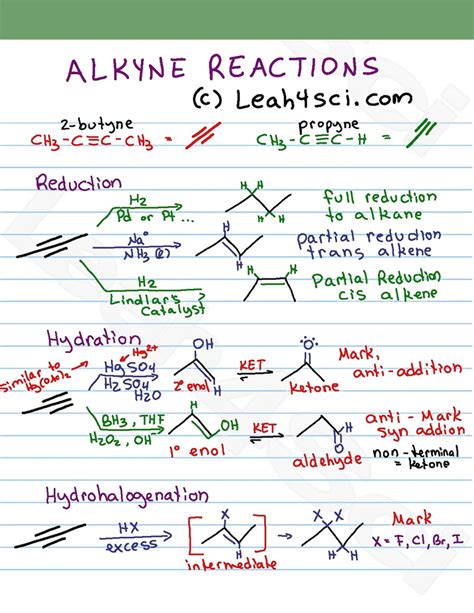 ALKYNE REACTIONS
(c) Leah4sci.com
2-butyne
propyne
CH3-C≡C-CH3 =
CH3-C≡C-H =
Reduction
H2
Pd or Pt ...
H H
H H
full reduction
to alkane
Na°
NH3 (l)
H
H
partial reduction
trans alkene
H2
Lindlar's
Catalyst
H H
Partial Reduction
cis alkene
Hydration
Similar to
Hg2+
HgSO4
H2SO4
H2O
OH
H
2° enol
KET
:O:
ketone
Mark,
anti-addition
BH3, THF
H2O2, OH-
OH
1° enol
KET
O
H
aldehyde
anti - Mark
syn addion
non-terminal
= ketone
Hydrohalogenation
HX
excess
X
H
intermediate
X X
H H
Mark
X = F, Cl, Br, I